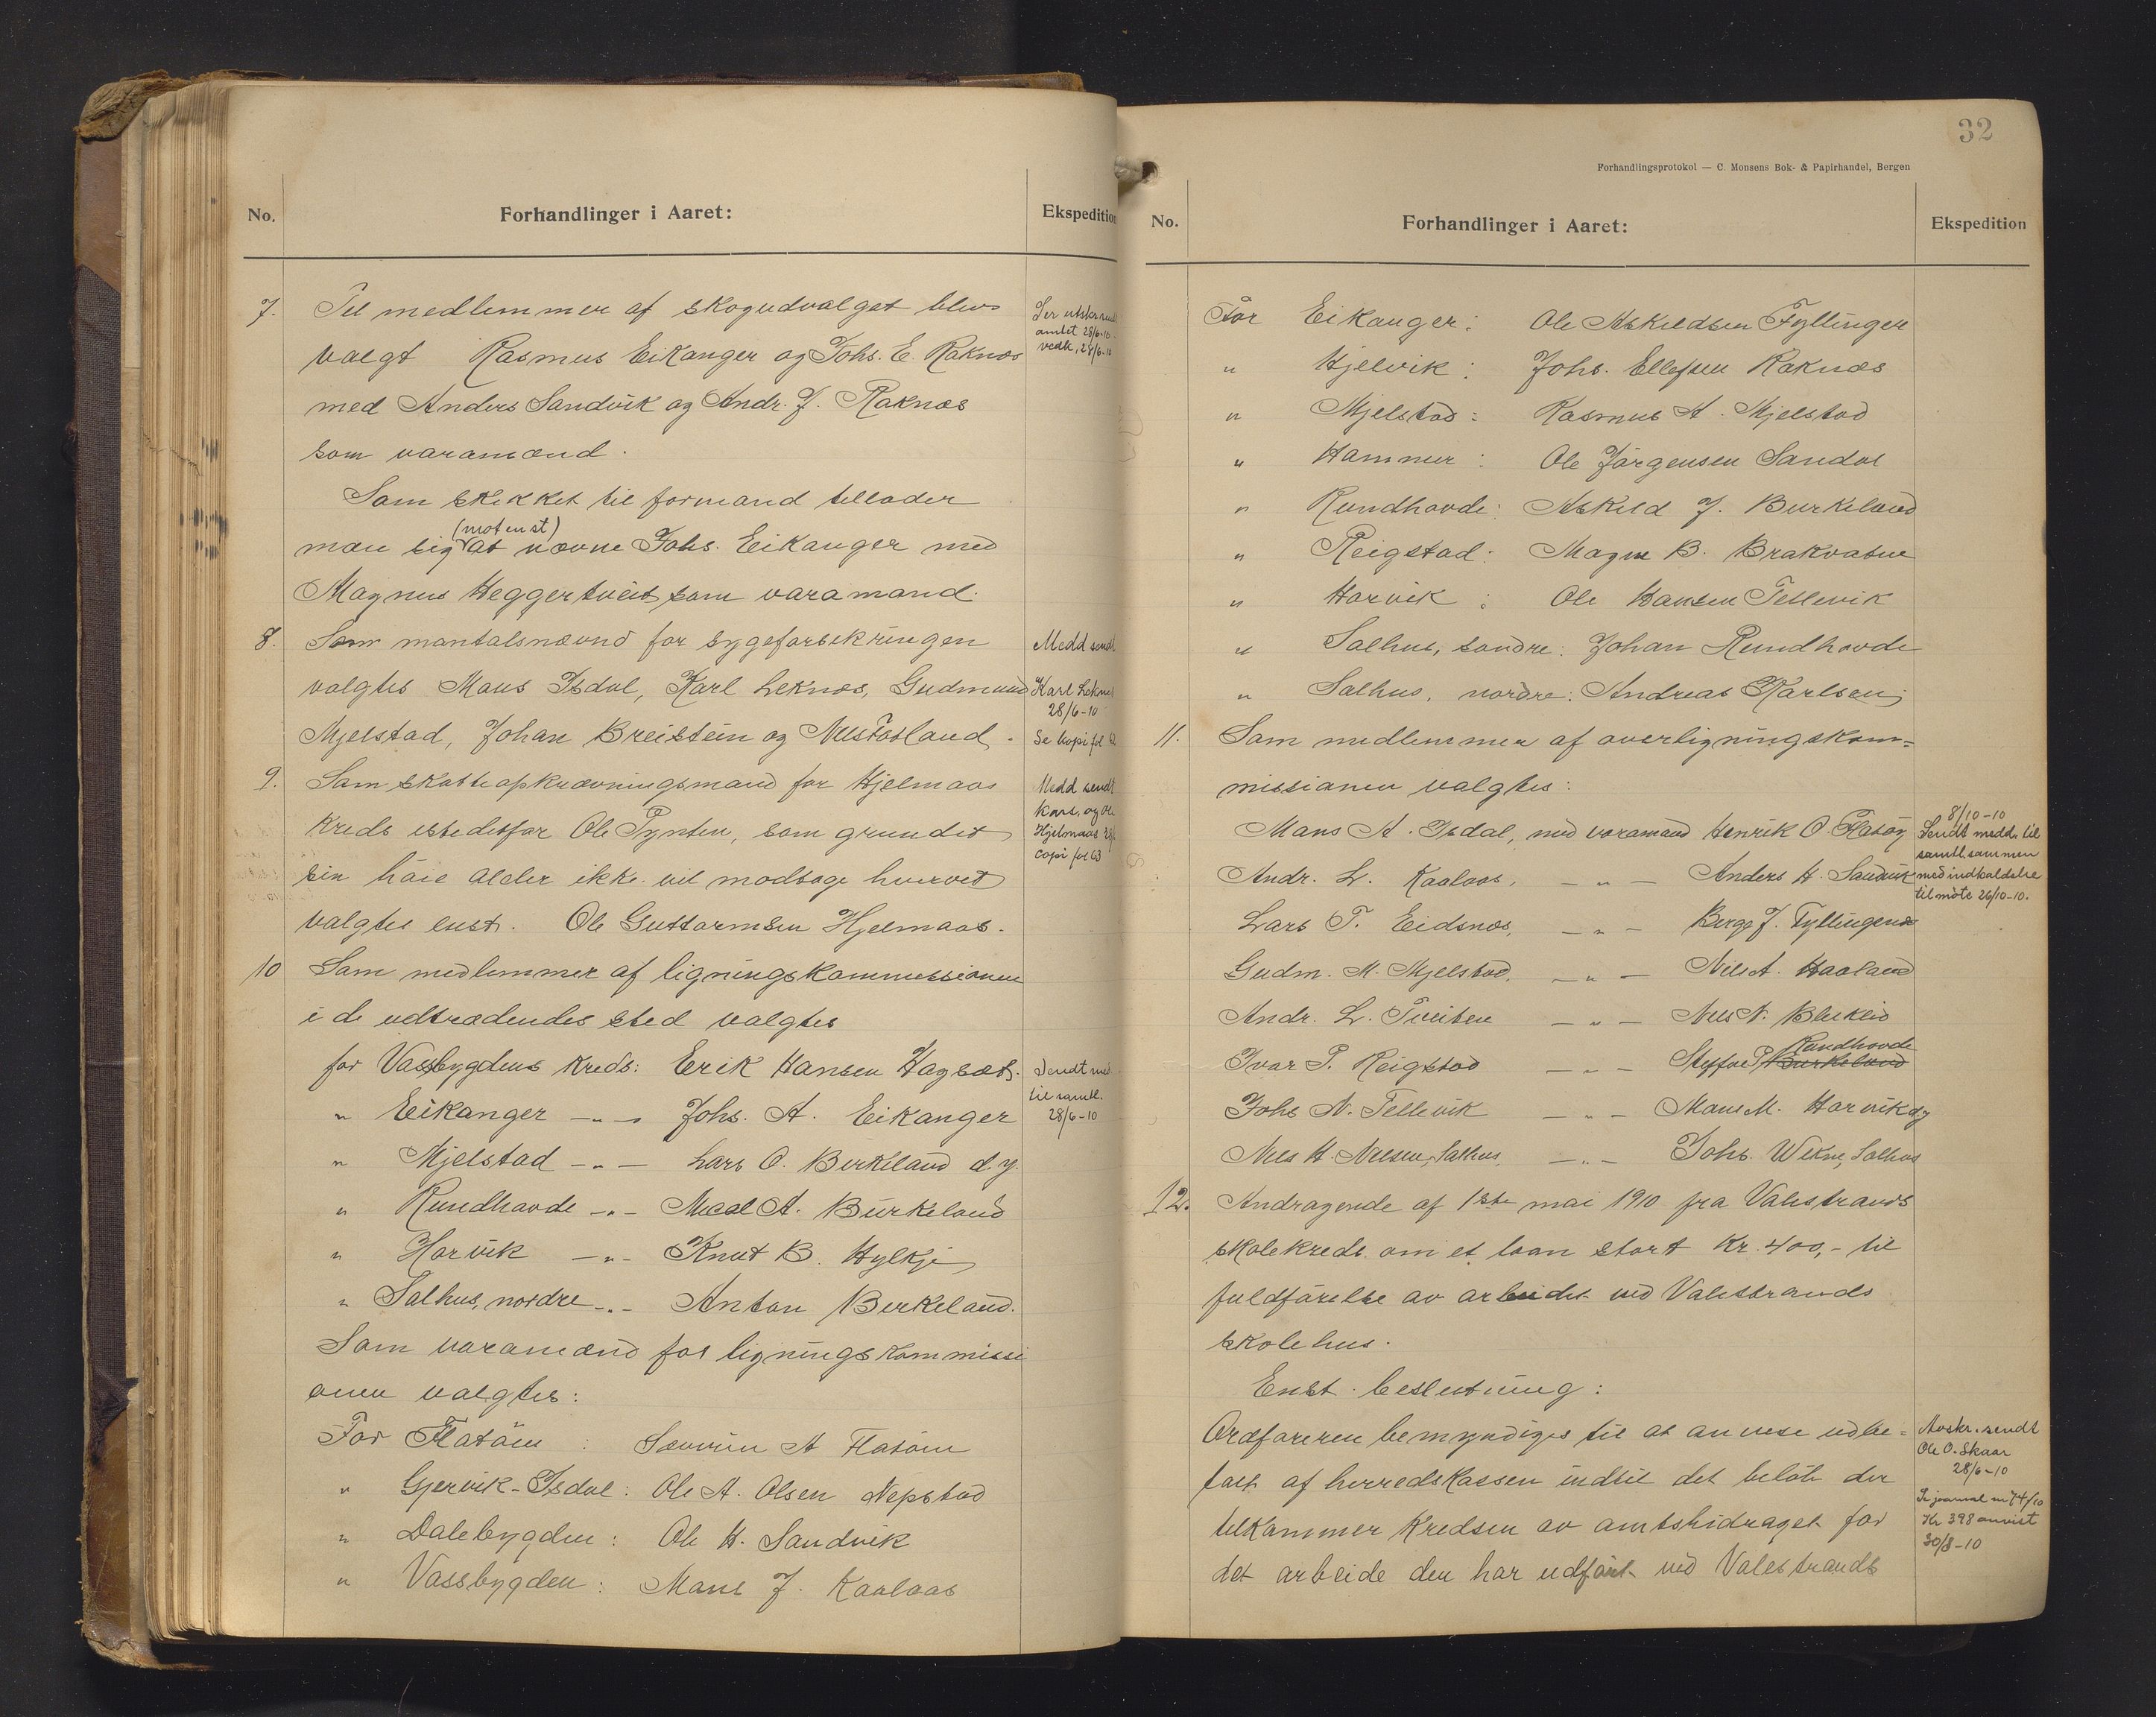 No.
Forhandlinger i Aaret:
Ekspedition
7. Til medlemmer af skogudvalget blev
valgt Rasmus Eikanger og Johs. E. Raknæs
med Anders Sandvik og Andr. J. Raknæs
som varamænd.
Som skikket til formand tillader
(mot en st)
man sig at nævne Johs. Eikanger med
Magnus Heggertveit som varamand.
8. Som mantalsnævnd for sygeforsikringen
valgtes Mons Isdal, Karl Leknæs, Gudmund
Mjelstad, Johan Breistein og Nils Fosland.
9. Som skatteopkrævningsmand for Hjelmaas
kreds istedetfor Ole Tynten, som grundet
sin høie alder ikke vil modtage hvervet
valgtes enst. Ole Guttormsen Hjelmaas.
10 Som medlemmer af ligningskommissionen
i de udtrædendes sted valgtes
for Vassbygdens Kreds: Erik Hansen Hagsæt.
" Eikanger —"— Johs. A. Eikanger
" Mjelstad —"— Lars O. Birkeland d.y.
" Rundhovde —"— A. Birkeland
" Horvik —"— Knut B. Hylkje
" Salhus, nordre —"— Anton Birkeland.
Som varamænd for ligningskommissi
onen valgtes:
For Flatøen : Severin A Flatøen
" Gjervik-Isdal: Ole A. Olsen Nepstad
" Dalebygden: Ole H. Sandvik
" Vassbygden: Mons J. Kaalaas
amtet 28/6-10
vedk. 28/6-10
Medd sendt
Karl Leknes
28/6-10
Se kopi fol
Medd sendt
Kars. og Ole
Hjelmaas
copi fol 63
Sendt med.
til samtl.
28/6-10
32
Forhandlingsprotokol — C. Monsens Bok- & Papirhandel, Bergen
No.
Forhandlinger i Aaret:
Ekspedition
For Eikanger: Ole Askildsen Fyllingen
" Hjelvik: Johs. Ellefsen Raknæs
" Mjelstad: Rasmus A. Mjelstad
" Hammer: Ole Jørgensen Sandal
" Rundhovde: Askild J. Burkeland
" Reigstad: Magne B. Brakvatne
" Horvik: Ole Hansen Tellevik
" Salhus, søndre: Johan Rundhovde
" Salhus, nordre: Andreas Karlsen
11. Som medlemmer af overligningskom=
missionen valgtes:
Mons A. Isdal, med varamand Henrik O. Flatøy
Andr. L. Kaalaas, —"— Anders H. Sandvik
Lars T. Eidsnes, —"— Berge J. Fyllingen
Gudm. M. Mjelstad, —"— Nils A. Haaland
Andr. L. Tveiten —"— Nils N. Bleiklid
Rundhovde
Ivar P. Reigstad —"— Steffen P. Burkeland
Johs N. Tellevik —"— Mons M. Horvik og
Nils H. Nilsen, Salhus, —"— Johs. Wikne, Salhus
12. Andragende af 1ste mai 1910 fra Valestrands
skolekreds om et laan stort Kr. 400,- til
fuldførelse av arbeidet ved Valestrands
skolehus.
Enst. beslutning:
Ordføreren bemyndiges til at anvise udbe=
talt af herredskassen indtil det beløb der
tilkommer Kredsen av amtsbidraget for
det arbeide den har udført ved Valestrands
8/10-10
Sendt medd. til
samtl. sammen
med indkaldelse
til møte 26/10-10.
Avskr. sendt
Ole O. Skaar
28/6-10
Se journal nr 74/10
Kr 398 anvist
30/8-10